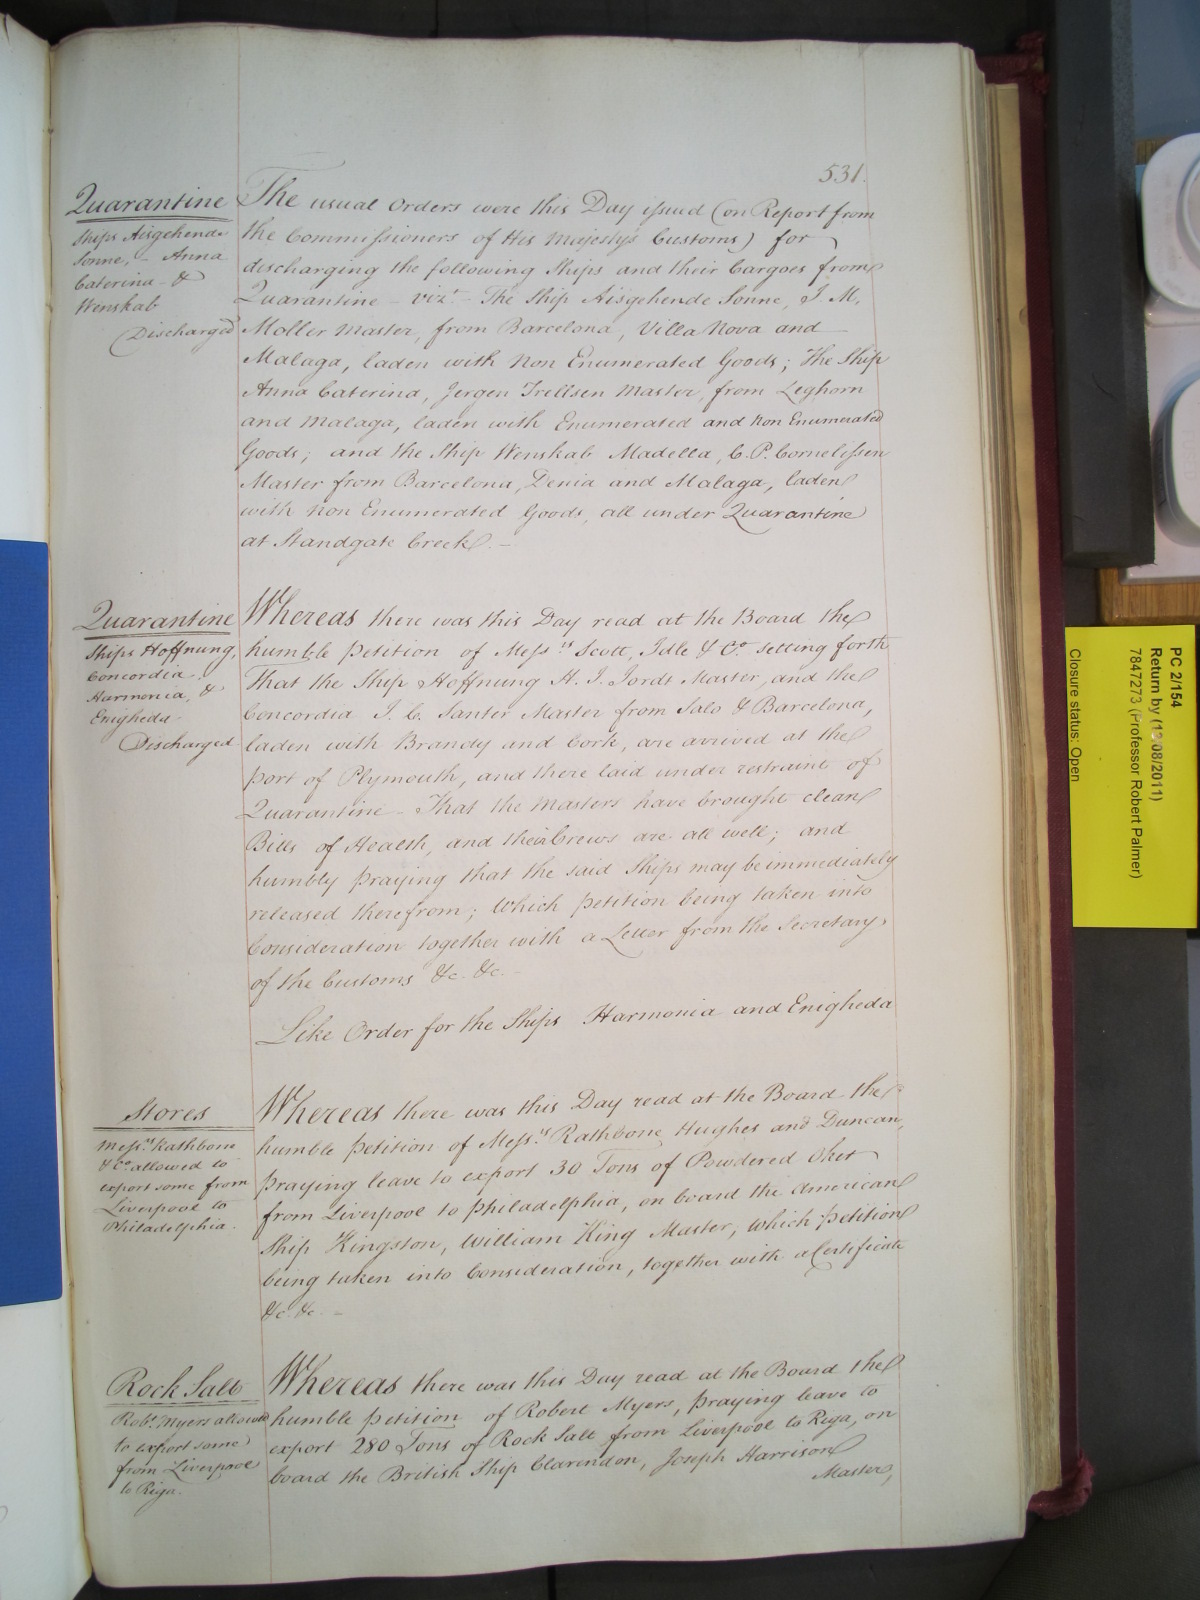 531.
Quarantine
Ships Aisgehende
Sonne, - Anna
Caterina - &
Wenskab
Discharged
The usual Orders were this Day issued (on Report from
the Commissioners of His Majestys Customs) for
discharging the following Ships and their Cargoes from
Quarantine - vizt. - The Ship Aisgehende Sonne, J. M.
Moller Master, from Barcelona, Villa Nova and
Malaga, laden with Non Enumerated Goods; The Ship
Anna Caterina, Jergen Trellsen Master, from Leghorn
and Malaga, laden with Enumerated and Non Enumerated
Goods; and the Ship Wenskab Madella, C. P. Cornelessen
Master from Barcelona, Denia and Malaga, laden
with Non Enumerated Goods, all under Quarantine
at Standgate Creek. -
Quarantine
Ships Hoffnung,
Concordia
Harmonia, &
Enigheda
Discharged
Whereas there was this Day read at the Board the
humble petition of Messrs. Scott, Idle & Co. setting forth
That the Ship Hoffnung H. J. Jordt Master, and the
Concordia J. C. Santer Master from Salo & Barcelona,
laden with Brandy and Cork, are arrived at the
port of Plymouth, and there laid under restraint of
Quarantine - That the Masters have brought clean
Bills of Health, and their Crews are all well; and
humbly praying that the said Ships may be immediately
released therefrom; Which petition being taken into
Consideration together with a Letter from the Secretary
of the Customs &c. &c. -
Like Order for the Ships Harmonia and Enigheda
Stores
Messrs. Rathbone
& Co. allowed to
export some from
Liverpool to
Philadelphia.
Whereas there was this Day read at the Board the
humble petition of Messrs. Rathbone Hughes and Duncan,
praying leave to export 30 Tons of Powdered Oker
from Liverpool to Philadelphia, on board the American
Ship Kingston, William King Master, Which petition
being taken into Consideration, together with a Certificate
&c. &c. -
Rock Salt
Robt. Myers allowed
to export some
from Liverpool
to Riga.
Whereas there was this Day read at the Board the
humble petition of Robert Myers, praying leave to
export 280 Tons of Rock Salt from Liverpool to Riga, on
board the British Ship Clarendon, Joseph Harrison
Master,
PC 2/154
Return by (1 08/2011)
7847273 (Professor Robert Palmer)
Closure status: Open